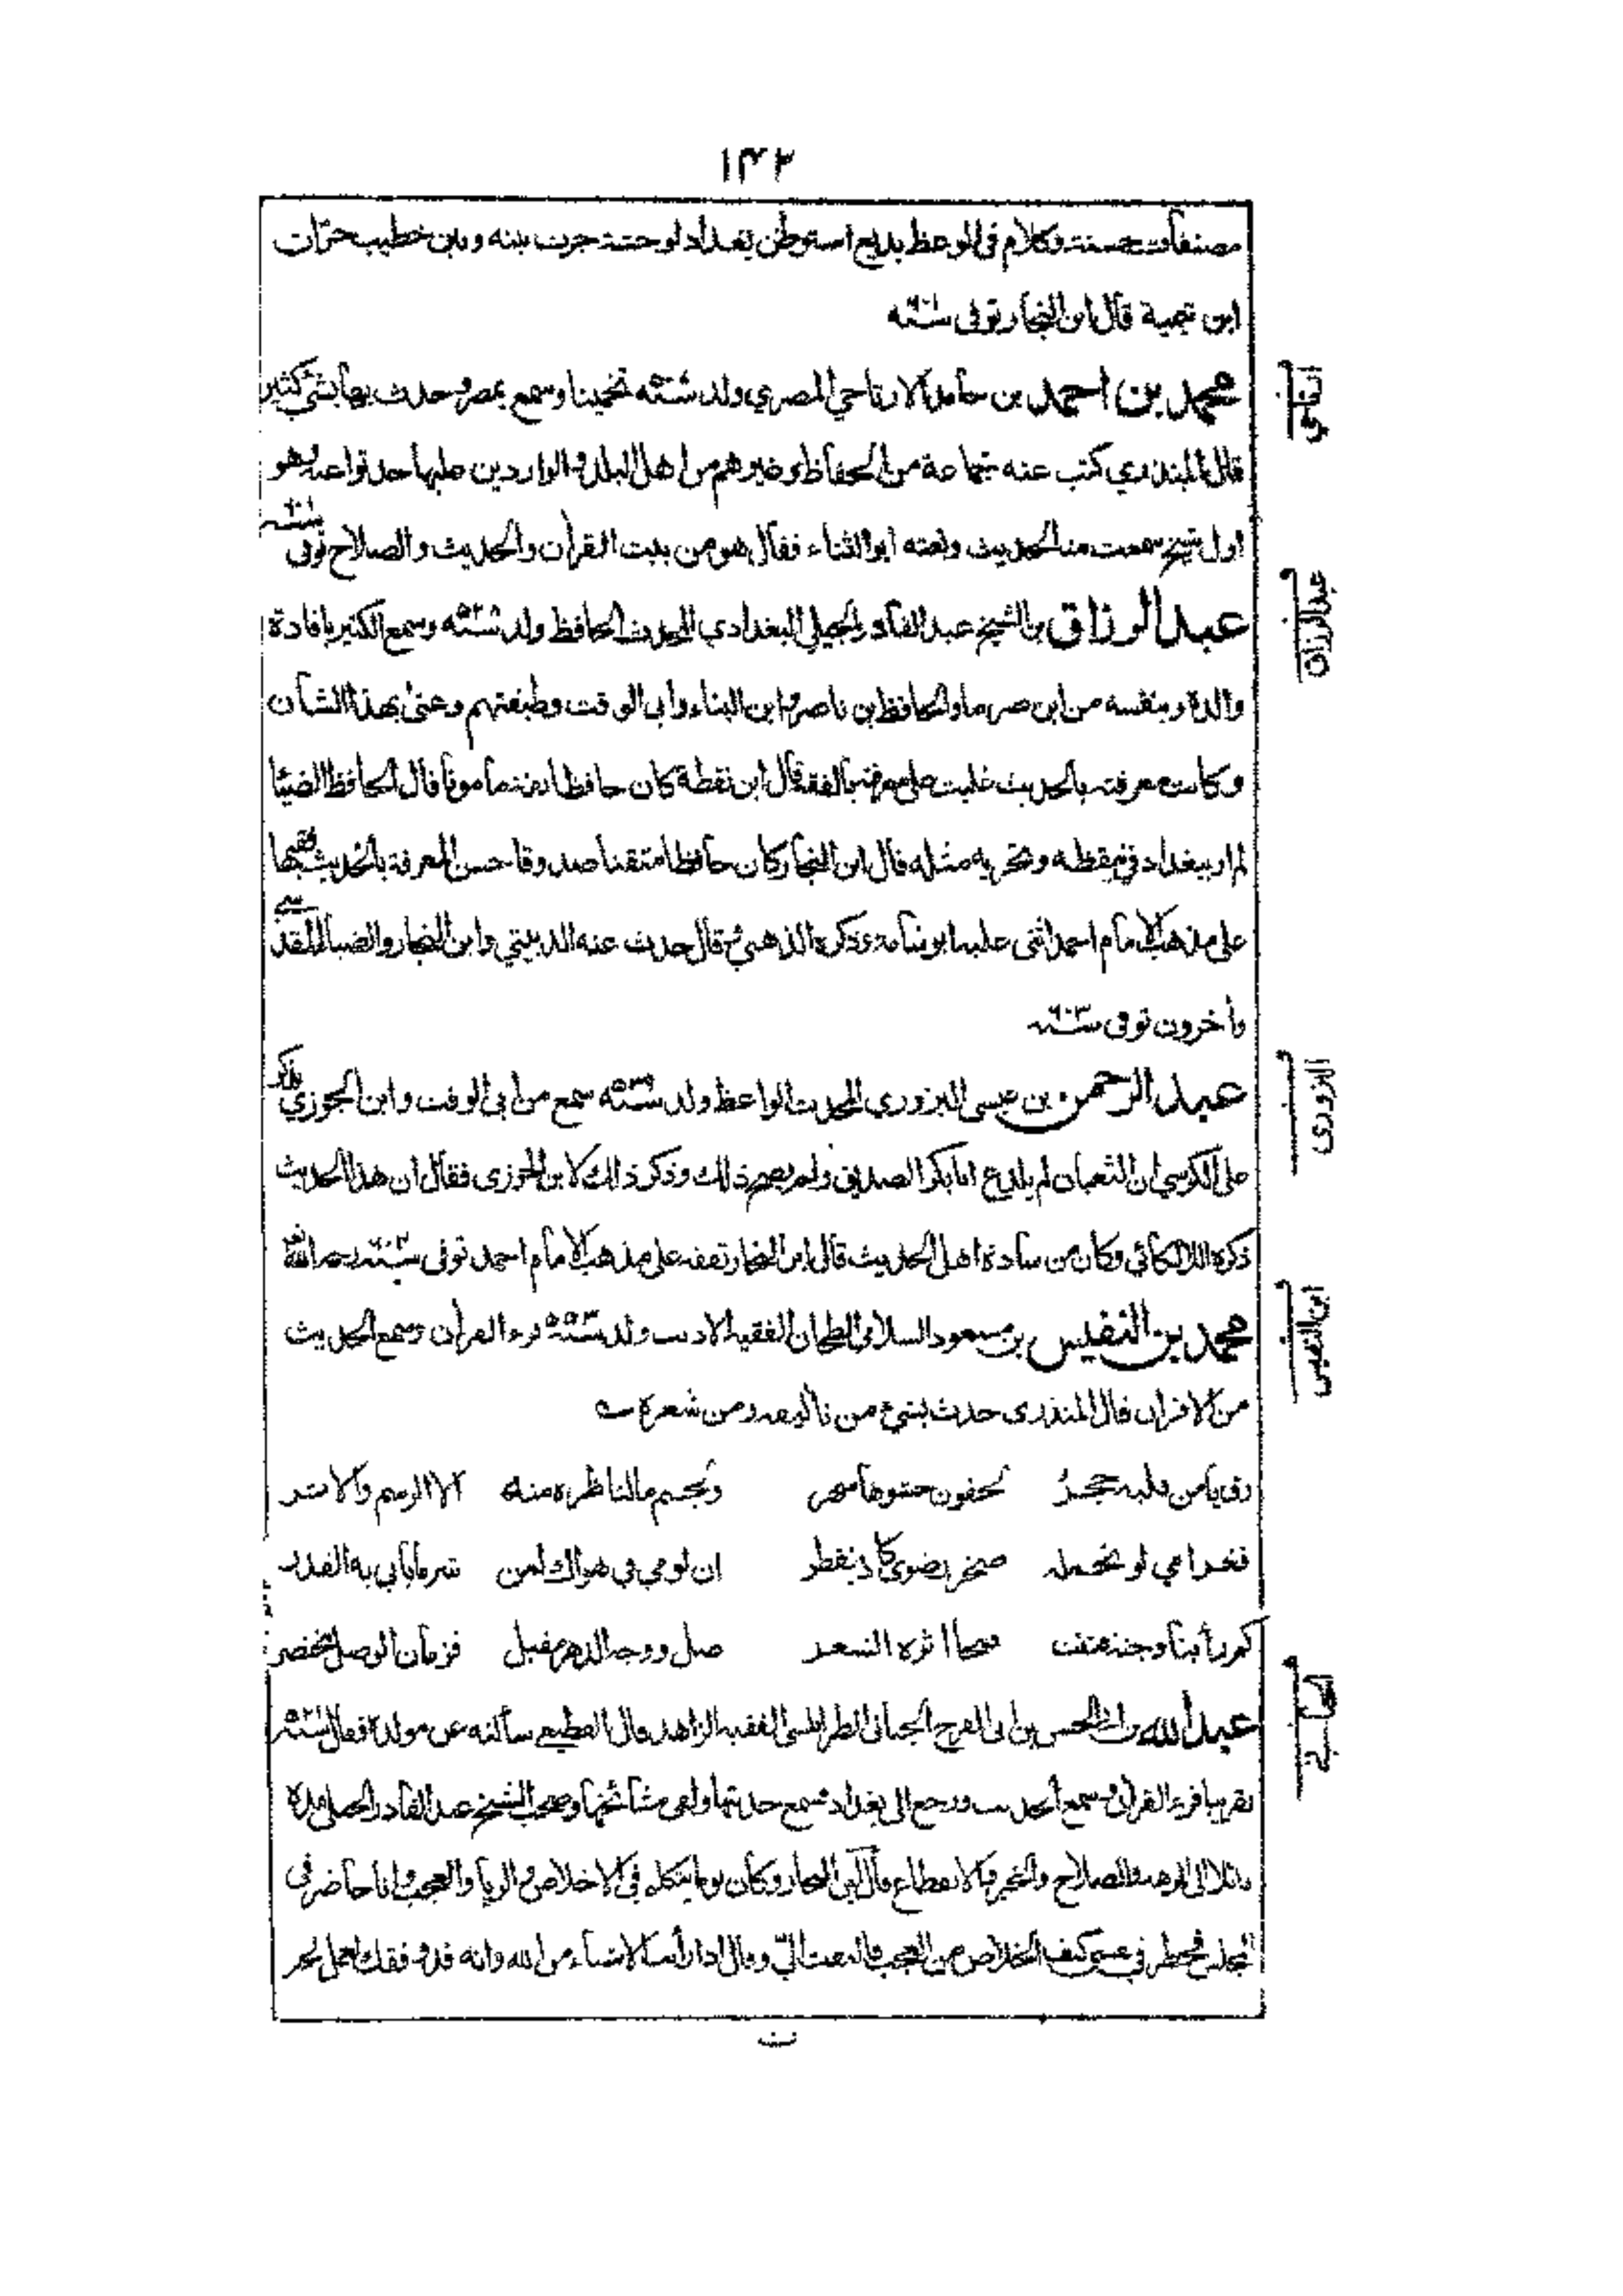 ١٤٣
مصنفات حسنة وكلام في الوعظ بديع استوطن بغداد لوحشة جرت بينه وبين خطيب حران
ابن تيمية قال ابن النجار توفى سنة
محمد بن احمد بن حامد الارتاحي المصري ولد سنة تخمينا وسمع بمصر وحدث بها بشئ كثير
قال المنذري كتب عنه جماعة من الحفاظ وغيرهم من اهل البلد والواردين عليها حدثوا عنه وهو
اول شيخ سمعت منه الحديث ونعته ابو الثناء فقال هو من بيت القرأن والحديث والصلاح توفى سنة ٦٠١
عبد الرزاق بن الشيخ عبد القادر الجيلي البغدادي المحدث الحافظ ولد سنة وسمع الكثير بافادة
والدة وبنفسه من ابن صرما والحافظ بن ناصر وابن البناء وابى الوقت وطبقتهم وعنى بهذا الشأن
وكانت معرفته بالحديث غلبت على معرفته بالفقه قال ابن نقطة كان حافظا ثقة مأمونا قال الحافظ الضيا
لم ار ببغداد في تيقظه وتحريه مثله قال ابن النجار كان حافظا متقنا صدوقا حسن المعرفة بالحديث فقيها
على مذهب الامام احمد اثنى عليه ابو شامة وذكره الذهبي قال حدث عنه الدبيثي وابن النجار والضيا المقدسي
وأخرون توفى سنة ٦٠٣
عبد الرحمن بن عيسى البزوري المحدث الواعظ ولد سنة ٥٣٩ سمع من ابى الوقت وابن الجوزي وذكر
على الكرسي ان الثعبان لم يلدغ ابا بكر الصديق ولم يصح ذلك وذكر ذلك لابن الجوزى فقال ان هذا الحديث
ذكره اللالكائي وكان من سادة اهل الحديث قال ابن النجار تفقه على مذهب الامام احمد توفى سنة رحمه الله
محمد بن النفيس بن مسعود السلامي الطحان الفقيه الاديب ولد سنة قرء القرأن وسمع الحديث
من الاقران قال المنذرى حدث بشئ من تأليفه ومن شعره
رق يا من قلبه حجر لجفون حشوها سهر ولجسم ما لناظره منه الا الرسم والاثر
فغرامي لو تحمله صخر رضوى كاد ينفطر ان لومي في هواك لمن شر ما ياتي به القدر
كم رأينا وجنة فمحا اثره الشعر صل ووجه الدهر مقبل فزمان الوصل مختصر
عبد الله بن الحسن بن ابى الفرج الجبائى الطرابلسى الفقيه الزاهد قال القطيعي سألته عن مولده فقال سنة
تقريبا قرء القرأن وسمع الحديث ورجع الى بغداد فسمع حديثها ولقى مشائخها وصحب الشيخ عبد القادر الجيلى مدة
مائلا الى الزهد والصلاح والخير والانقطاع قال ابن النجار وكان يوما يتكلم في الاخلاص والريا والعجب وانا حاضر في
المجلس فخطر في نفسى كيف الخلاص من العجب فالتفت الىّ وقال اذا رأيت الاشياء من الله وانه قد وفقك لعمل الخير
عبد الرزاق
البزورى
ابن النفيس